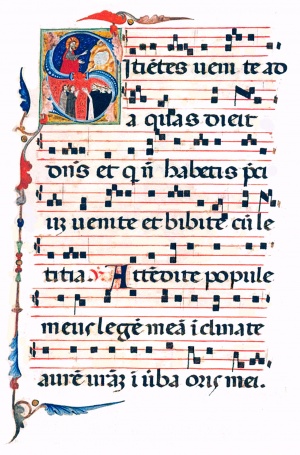 Sitiẽtes uenite ad
aquas dicit
dñs et q̃ ñ habetis p̃ci
uȝ uenite et bibite cũ le
titia Attẽdite popule
meus legẽ meã ĩclinate
aurẽ ur̃aȝ ĩ ũba oris mei.